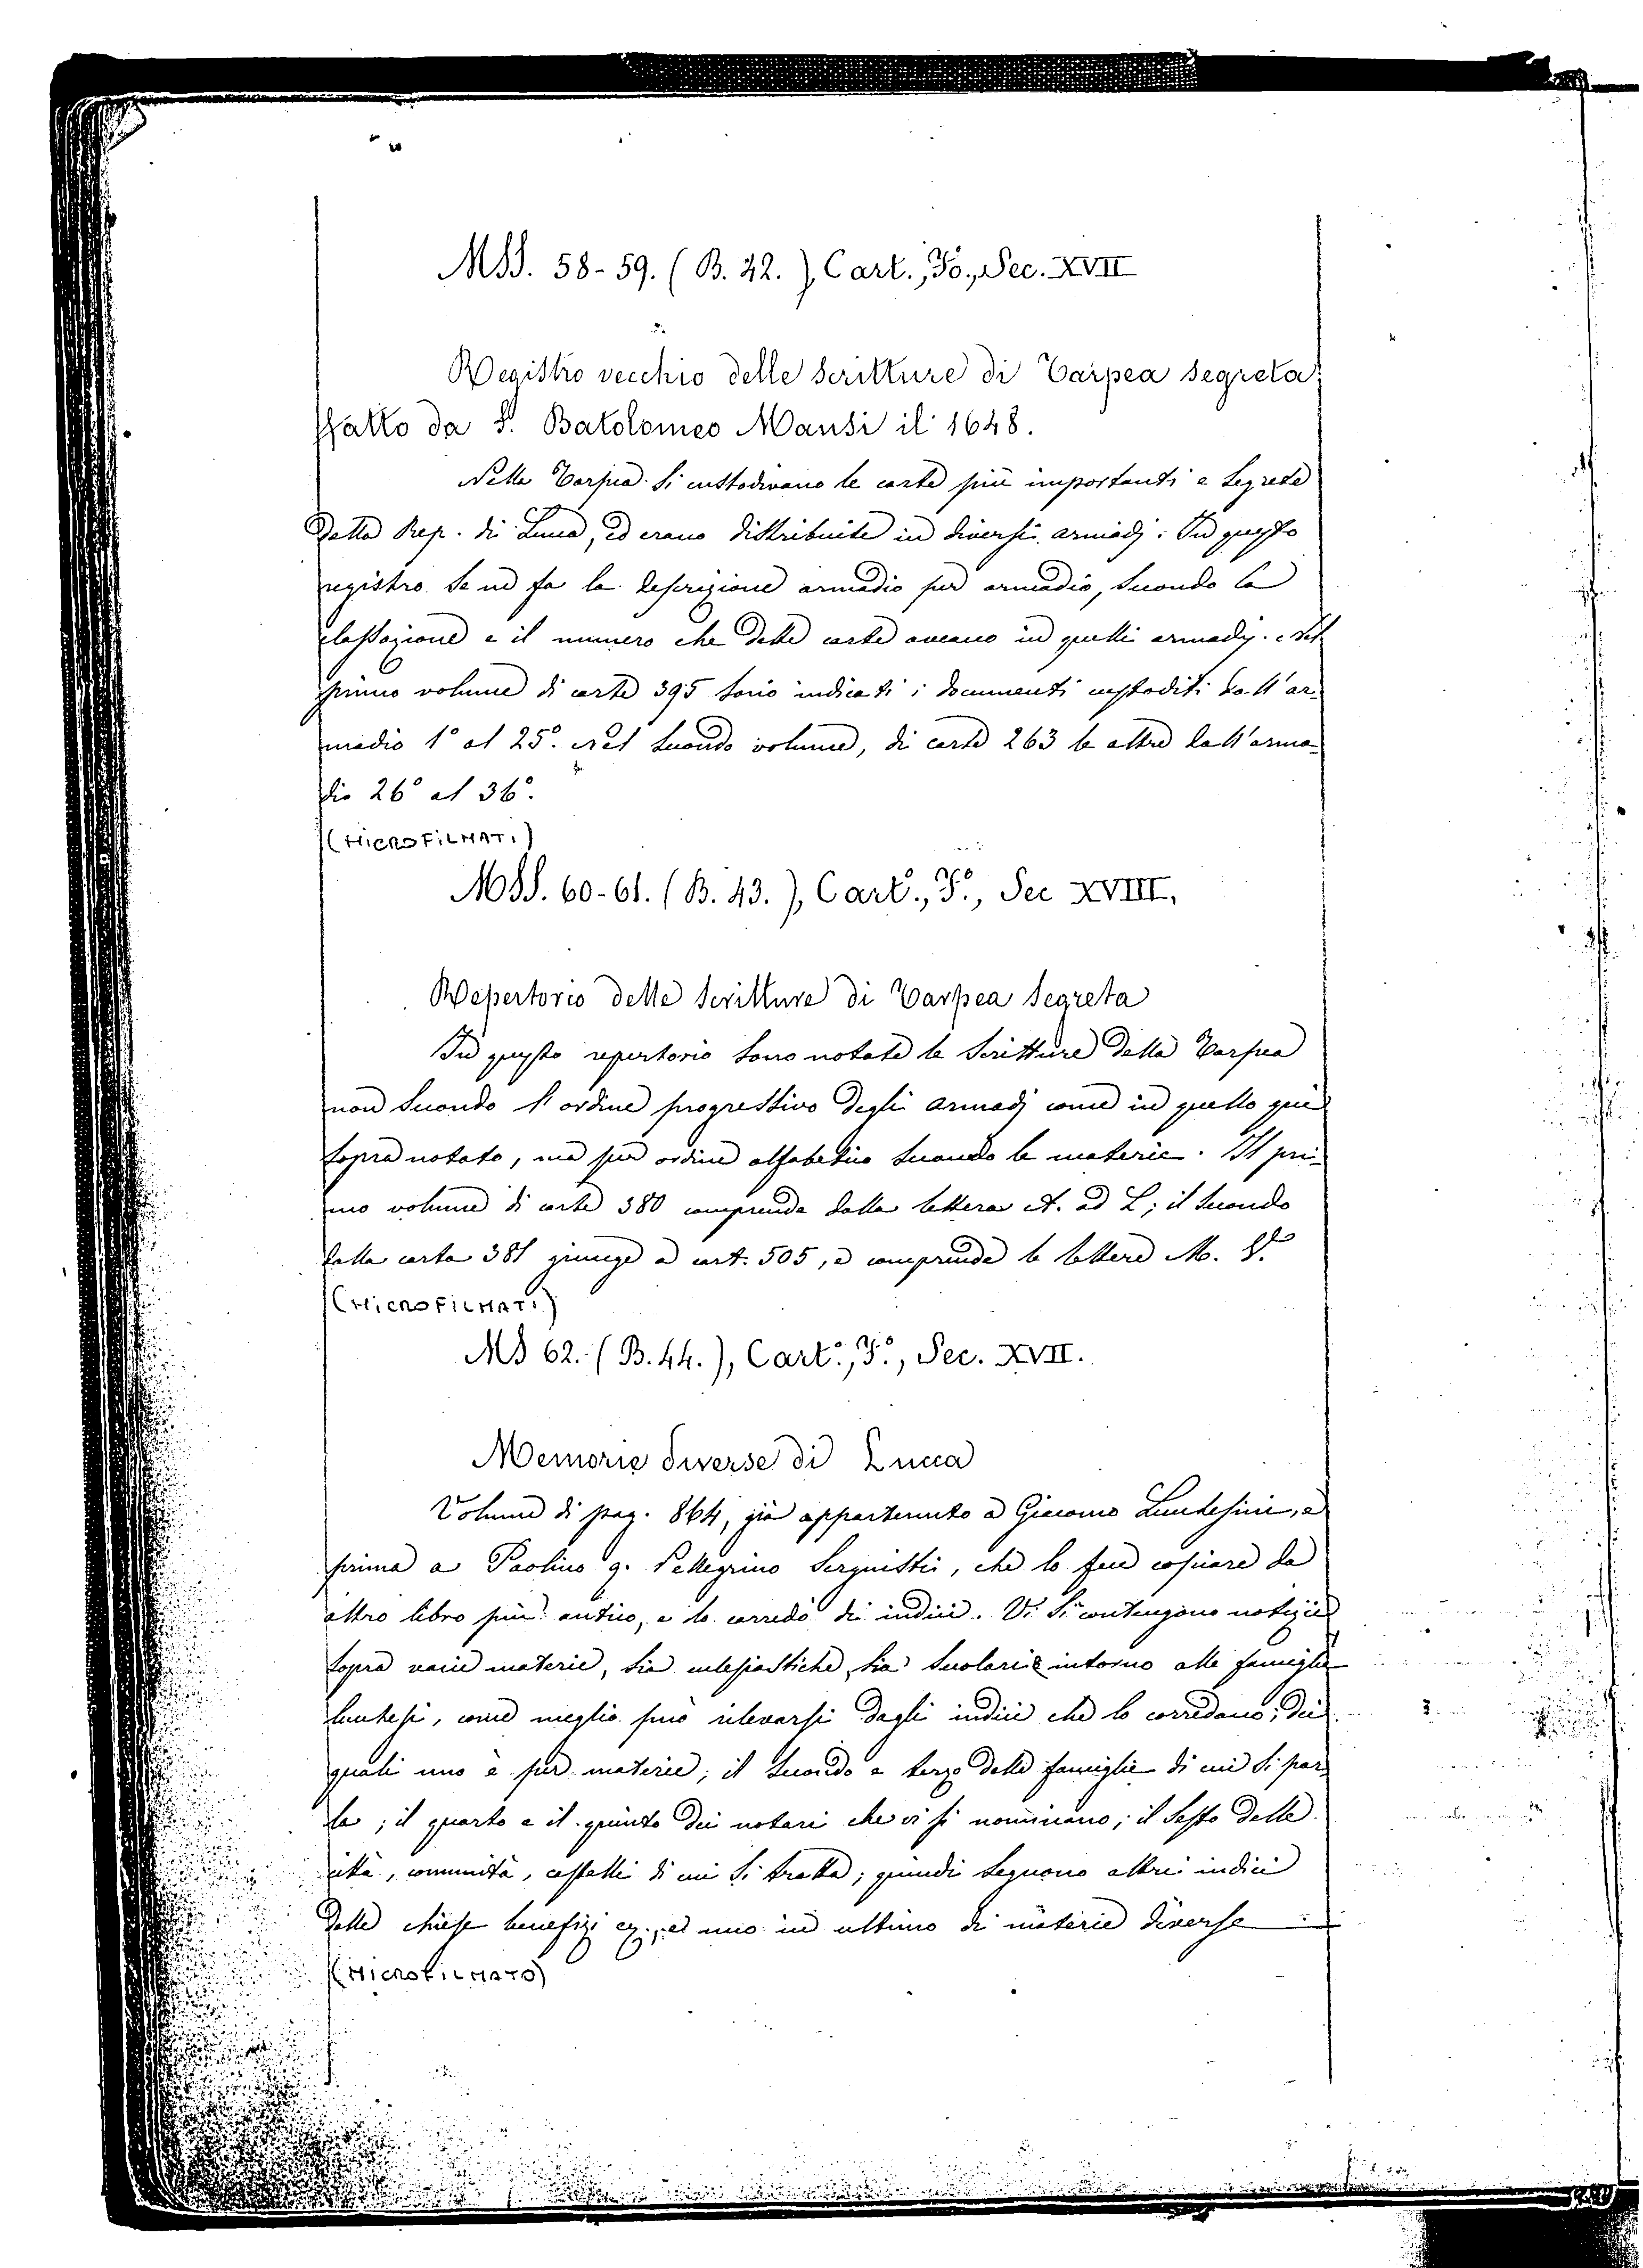 MSS. 58-59. (B. 42.), Cart., Fo., Sec. XVII
Registro vecchio delle scritture di Tarpea segreta
fatto da S. Batolomeo Mansi il 1648.
Nella Tarpea si custodivano le carte più importanti e segrete
della Rep. di Lucca, ed erano distribuite in diversi armadj. In questo
registro se ne fa la descrizione armadio per armadio, secondo la
classazione e il numero che dette carte aveano in quelli armadj. Nel
primo volume di carte 395 sono indicati i documenti custoditi dall'ar-
madio 1° al 25°. Nel secondo volume, di carte 263 le altre dall'arma-
dio 26° al 36°.
(MICROFILMATI)
MSS. 60-61. (B. 43.), Cart., F.°, Sec XVIII.
Repertorio delle scritture di Tarpea segreta
In questo repertorio sono notate le scritture della Tarpea
non secondo l'ordine progressivo degli armadj come in quello qui
sopra notato, ma per ordine alfabetico secondo le materie. Il pri-
mo volume di carte 380 comprende dalla lettera A. ad L; il secondo
dalla carta 381 giunge a cart. 505, e comprende le lettere M.
(MICROFILMATI)
MS 62. (B. 44.), Cart., F.°, Sec. XVII.
Memorie diverse di Lucca
Volume di pag. 864, già appartenuto a Giacomo Lucchesini, e
prima a Paolino q. Pellegrino Sergiusti, che lo fece copiare da
altro libro più antico, e lo corredò di indici. Vi si contengono notizie
sopra varie materie, sia eclesiastiche, sia secolari e intorno alle famiglie
lucchesi, come meglio può rilevarsi dagli indici che lo corredano, dei
quali uno è per materie; il secondo e terzo delle famiglie di cui si par-
la; il quarto e il quinto dei notari che vi si nominano; il sesto delle
città, comunità, castelli di cui si tratta; quindi seguono altri indici
delle chiese benefizi ec., ed uno in ultimo di materie diverse
(MICROFILMATO)